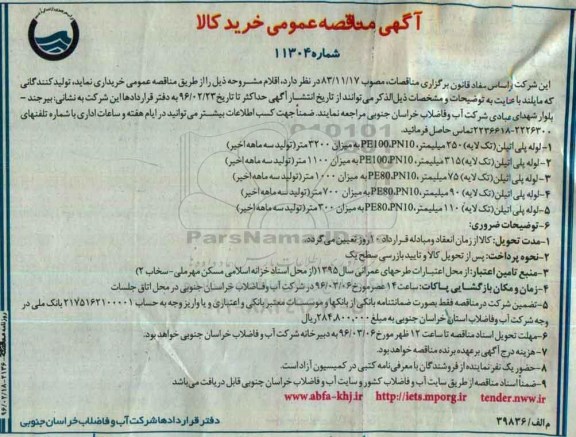 آگهی مناقصه عمومی خرید کالا
شماره ۱۱۳۰۴
این شرکت براساس مفاد قانون برگزاری مناقصات، مصوب ۸۳/۱۱/۱۷ در نظر دارد، اقلام مشروحه ذیل را از طریق مناقصه عمومی خریداری نماید، تولیدکنندگانی
که مایلند با عنایت به توضیحات و مشخصات ذیل الذکر می توانند از تاریخ انتشار آگهی حداکثر تا تاریخ ۹۶/۰۲/۲۳ به دفتر قراردادها این شرکت به نشانی: بیرجند -
بلوار شهدای عبادی شرکت آب و فاضلاب خراسان جنوبی مراجعه نمایند. ضمناً جهت کسب اطلاعات بیشتر می توانید در ایام هفته و ساعات اداری با شماره تلفنهای
۲۲۲۶۳۰۰-۲۲۳۶۶۱۸ تماس حاصل فرمائید.
۱- لوله پلی اتیلن (تک لایه) ۲۵۰ میلیمتر، PE100،PN10 به میزان ۳۲۰۰ متر (تولید سه ماهه اخیر)
۲- لوله پلی اتیلن (تک لایه) ۳۱۵ میلیمتر، PE100،PN10 به میزان ۱۱۰۰ متر (تولید سه ماهه اخیر)
۳- لوله پلی اتیلن (تک لایه) ۷۵ میلیمتر، PE80،PN10 به میزان ۱۰۰۰ متر (تولید سه ماهه اخیر)
۴- لوله پلی اتیلن (تک لایه) ۹۰ میلیمتر، PE80،PN10 به میزان ۷۰۰ متر (تولید سه ماهه اخیر)
۵- لوله پلی اتیلن (تک لایه) ۱۱۰ میلیمتر، PE80،PN10 به میزان ۳۰۰ متر (تولید سه ماهه اخیر)
۶- توضیحات ضروری:
۱- مدت تحویل: کالا از زمان انعقاد و مبادله قرارداد ۲۰ روز تعیین می گردد.
۲- نحوه پرداخت: پس از تحویل کالا و تایید بازرسی سطح یک
۳- منبع تامین اعتبار: از محل اعتبارات طرحهای عمرانی سال ۱۳۹۵ (از محل اسناد خزانه اسلامی مسکن مهر ملی - سخاب ۲)
۴- زمان و مکان بازگشایی پاکات: ساعت ۱۴ عصر مورخ ۹۶/۰۳/۰۶ در شرکت آب و فاضلاب خراسان جنوبی در محل اتاق جلسات
۵- تضمین شرکت در مناقصه فقط بصورت ضمانتنامه بانکی از بانکها و موسسات معتبر بانکی و اعتباری و یا واریز وجه به حساب ۲۱۷۵۱۶۲۱۰۰۰۰۱ بانک ملی در
وجه شرکت آب و فاضلاب استان خراسان جنوبی به مبلغ ۲۸۴,۸۰۰,۰۰۰ ریال
۶- مهلت تحویل اسناد مناقصه تا ساعت ۱۲ ظهر مورخ ۹۶/۰۳/۰۶ به دبیرخانه شرکت آب و فاضلاب خراسان جنوبی خواهد بود.
۷- هزینه درج آگهی بر عهده برنده مناقصه خواهد بود.
۸- حضور یک نفر نماینده از فروشندگان با معرفی نامه کتبی در کمیسیون آزاد است.
۹- ضمناً اسناد مناقصه از طریق سایت آب و فاضلاب کشور و سایت آب و فاضلاب خراسان جنوبی قابل دریافت می باشد
www.abfa-khj.ir http://iets.mporg.ir tender.nww.ir
دفتر قراردادها شرکت آب و فاضلاب خراسان جنوبی
م الف/ ۳۹۸۳۶
ParsNamadData